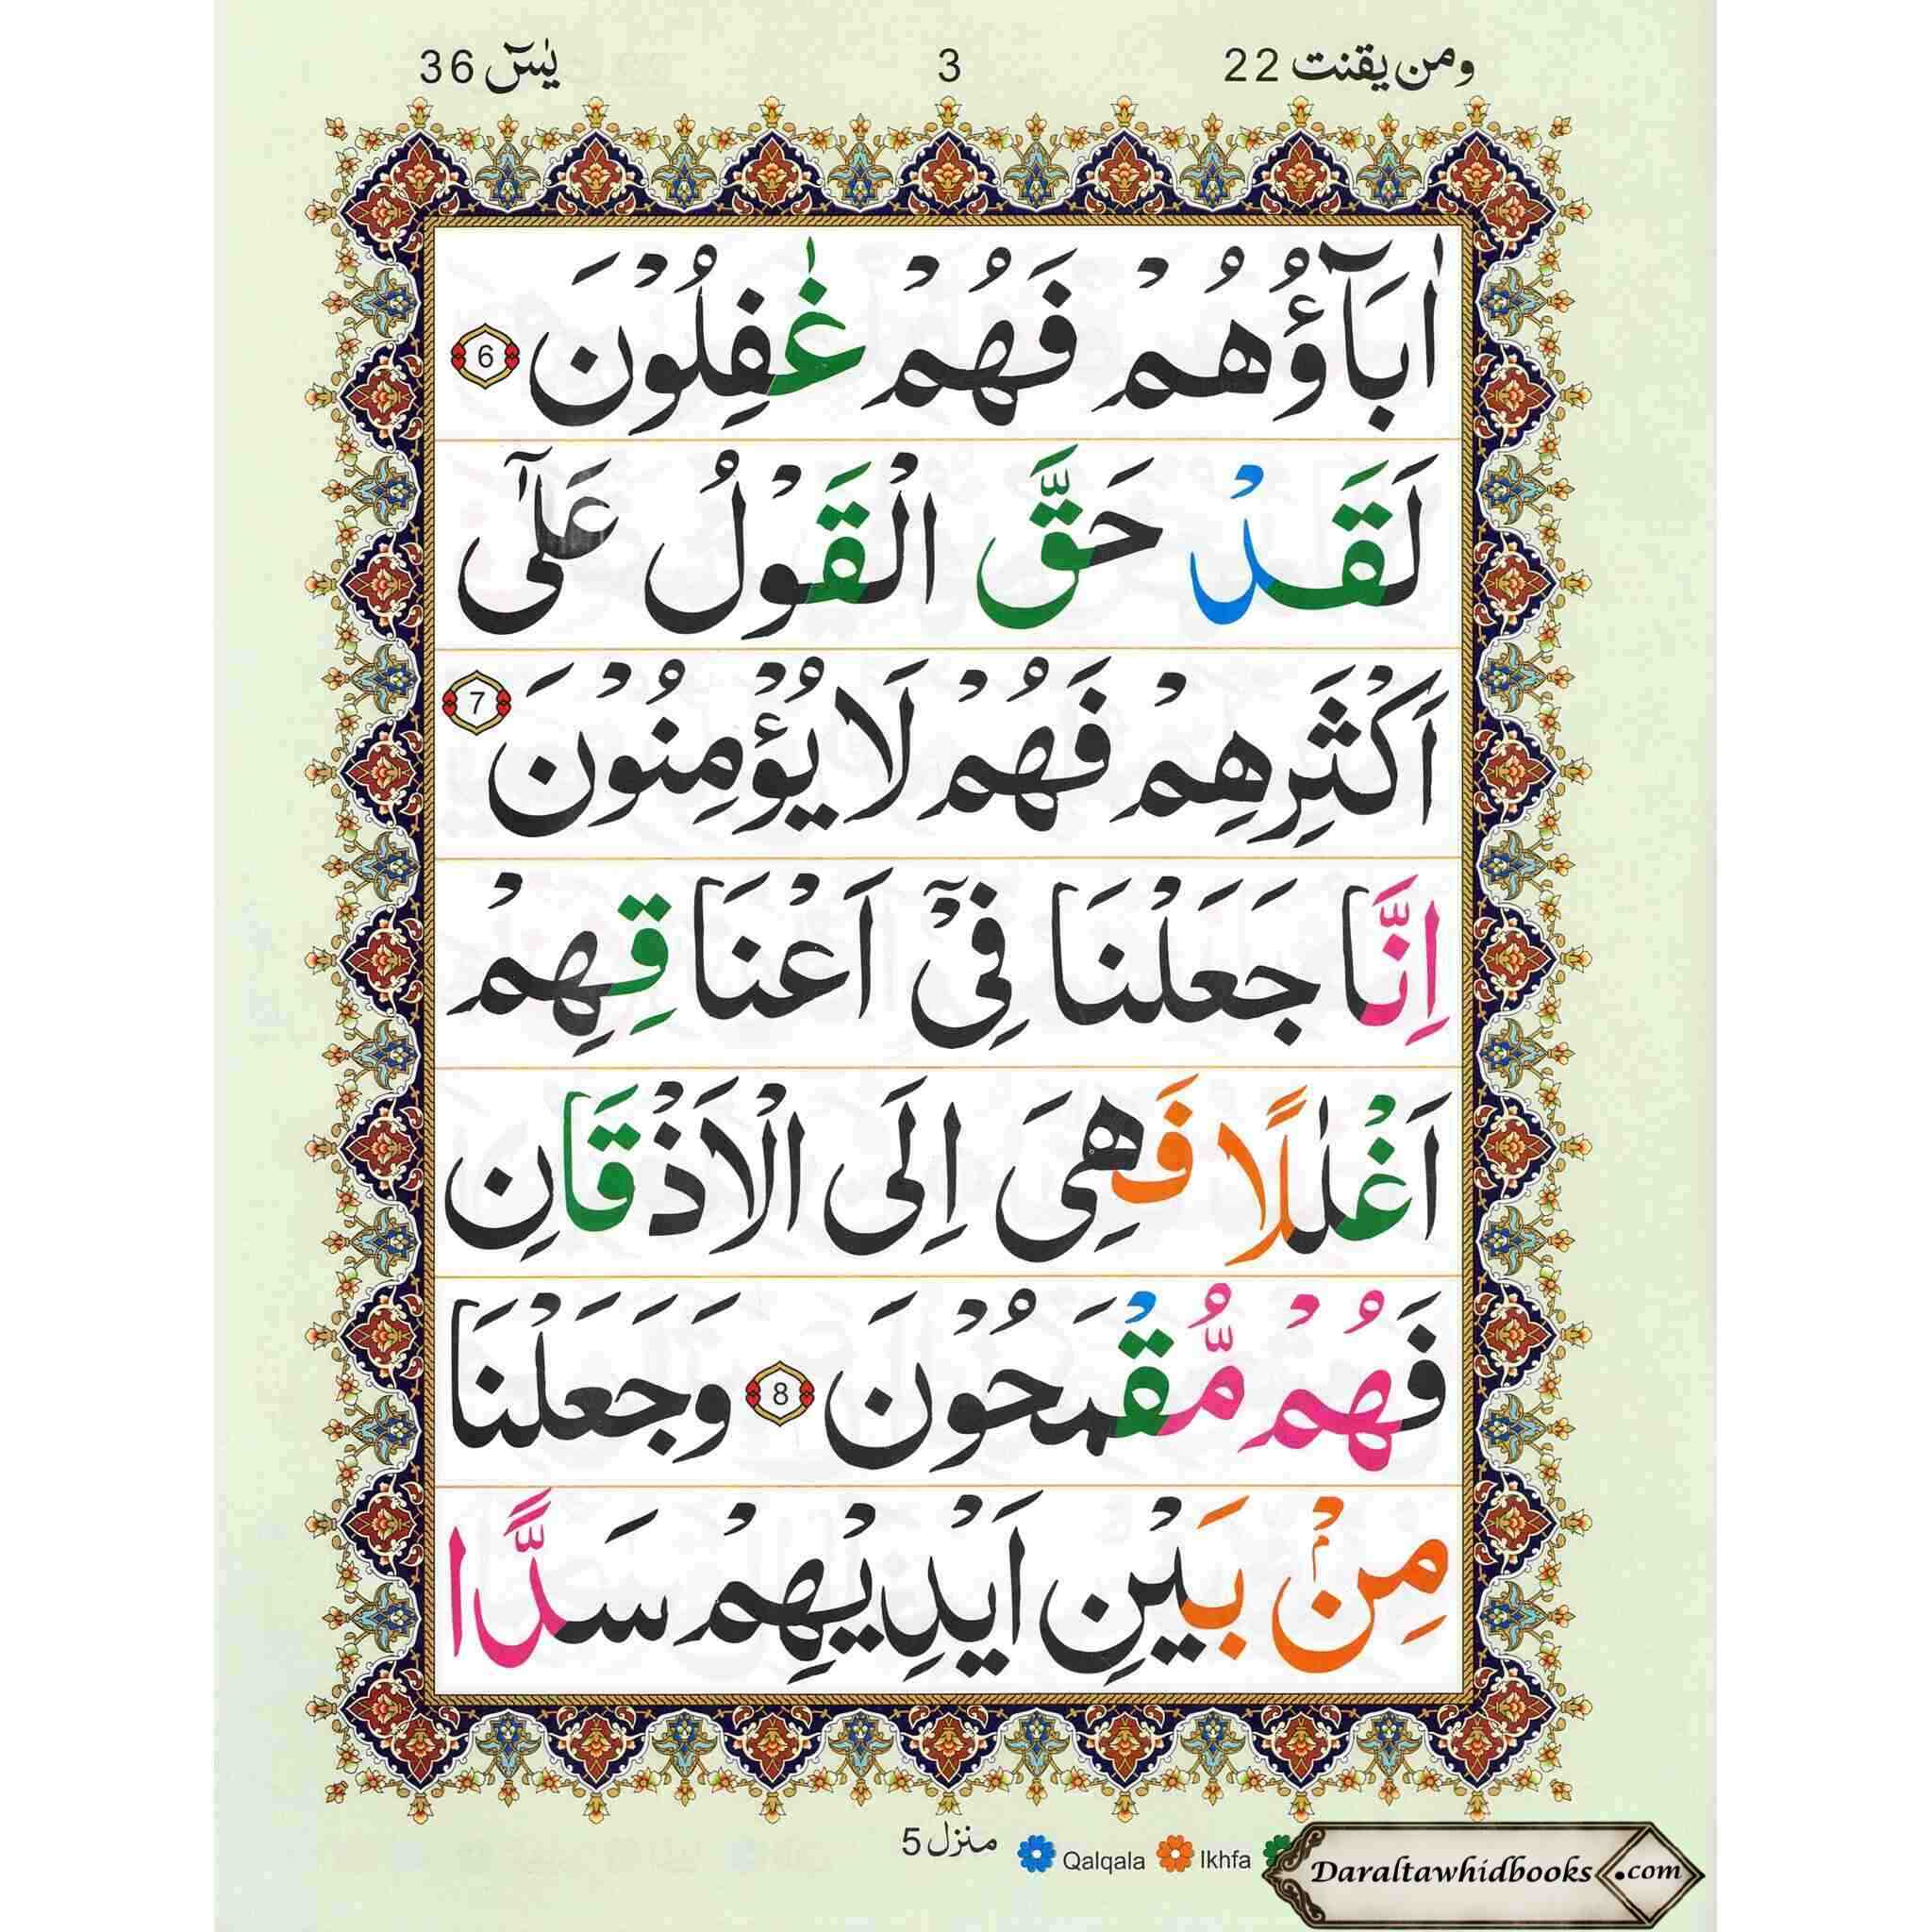 ومن يقنت 22
3
يٰسٓ 36
اٰبَآؤُهُمْ فَهُمْ غٰفِلُوْنَ 6
لَقَدْ حَقَّ الْقَوْلُ عَلٰٓى
اَكْثَرِهِمْ فَهُمْ لَا يُؤْمِنُوْنَ 7
اِنَّا جَعَلْنَا فِيْٓ اَعْنَاقِهِمْ
اَغْلٰلًا فَهِىَ اِلَى الْاَذْقَانِ
فَهُمْ مُّقْمَحُوْنَ 8 وَجَعَلْنَا
مِنْۢ بَيْنِ اَيْدِيْهِمْ سَدًّا
منزل 5
Qalqala Ikhfa
Daraltawhidbooks.com